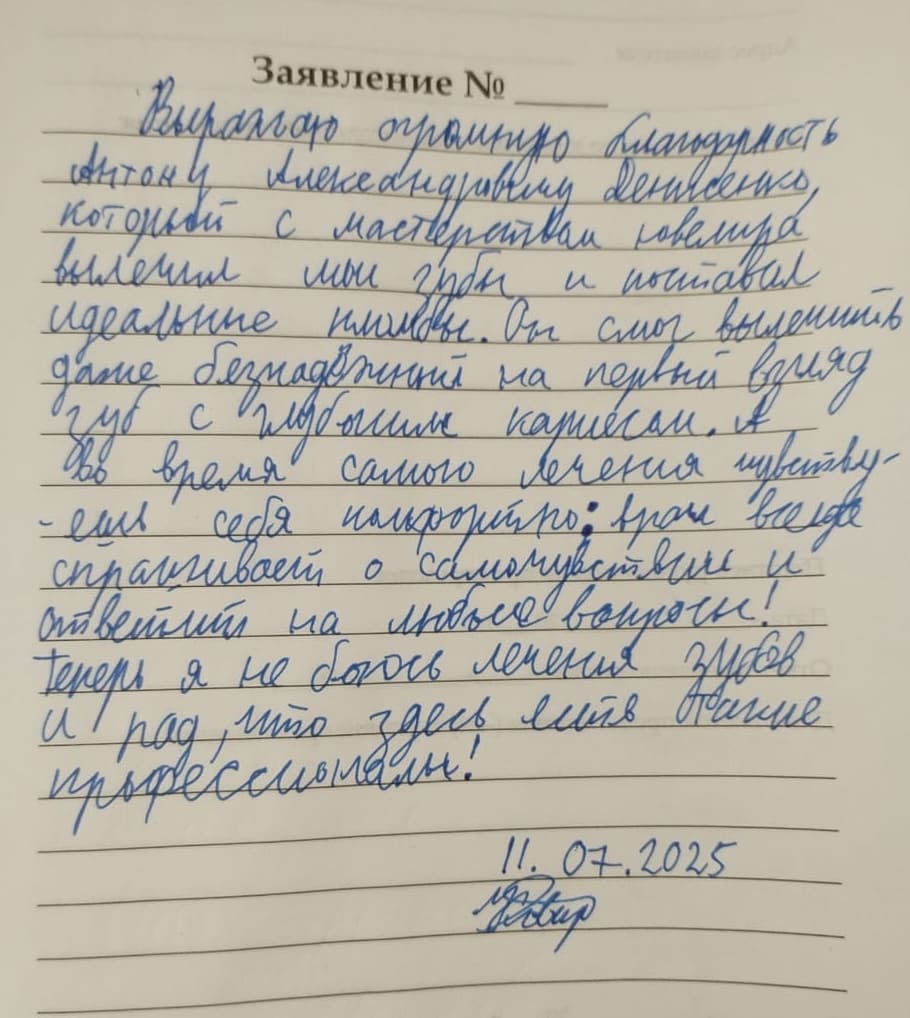 Заявление № ____
Выражаю огромную благодарность
Антону Александровичу Денисенко,
который с мастерством ювелира
вылечил мои зубы и поставил
идеальные пломбы. Он смог вылечить
даже безнадёжный на первый взгляд
зуб с глубоким кариесом. А
во время самого лечения чувству-
-ешь себя комфортно: врач всегда
спрашивает о самочувствии и
ответит на любые вопросы!
Теперь я не боюсь лечения зубов
и рад, что здесь есть такие
профессионалы!
11.07.2025